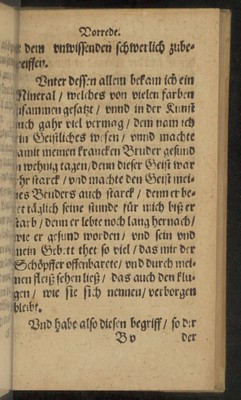 Vorrede.
dem vnwissenden schwerlich zube-
greiffen.
Vnter dessen allem bekam ich ein
Mineral / welches von vielen farben
zusammen gesatzt / vnnd in der Kunst
auch gahr viel vermag / dem nam ich
ein Geistliches wesen / vnnd machte
damit meinen krancken Bruder gesund
in wehnig tagen / denn dieser Geist war
sehr starck / vnd machte den Geist mei-
nes Bruders auch starck / denn er be-
tet täglich seine stunde für mich biß er
starb / denn er lebte noch lang hernach /
wie er gesund worden / vnd sein vnd
mein Gebett thet so viel / das mir der
Schöpffer offenbarete / vnd durch mei-
nen fleiß sehen ließ / das auch den klu-
gen / wie sie sich nennen / verborgen
bleibt.
Vnd habe also diesen begriff / so der
B v
der